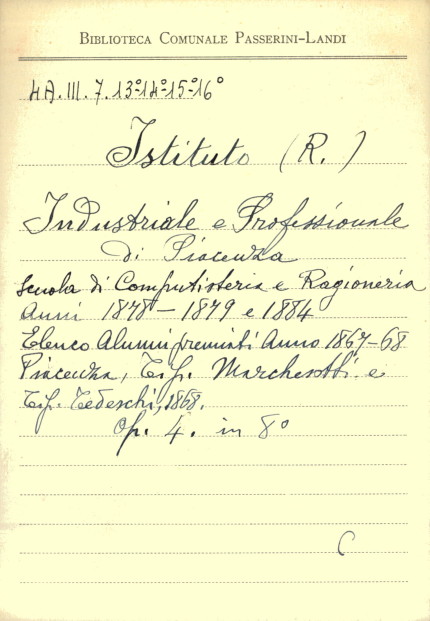 BIBLIOTECA COMUNALE PASSERINI-LANDI
4A.III.7.13º-14º-15º-16º
Istituto (R.)
Industriale e Professionale
di Piacenza
Scuola di Computisteria e Ragioneria
Anni 1878-1879 e 1884
Elenco Alunni premiati Anno 1867-68
Piacenza, Tip. Marchesotti e
Tip. Tedeschi, 1868.
Op. 4. in 8º
C